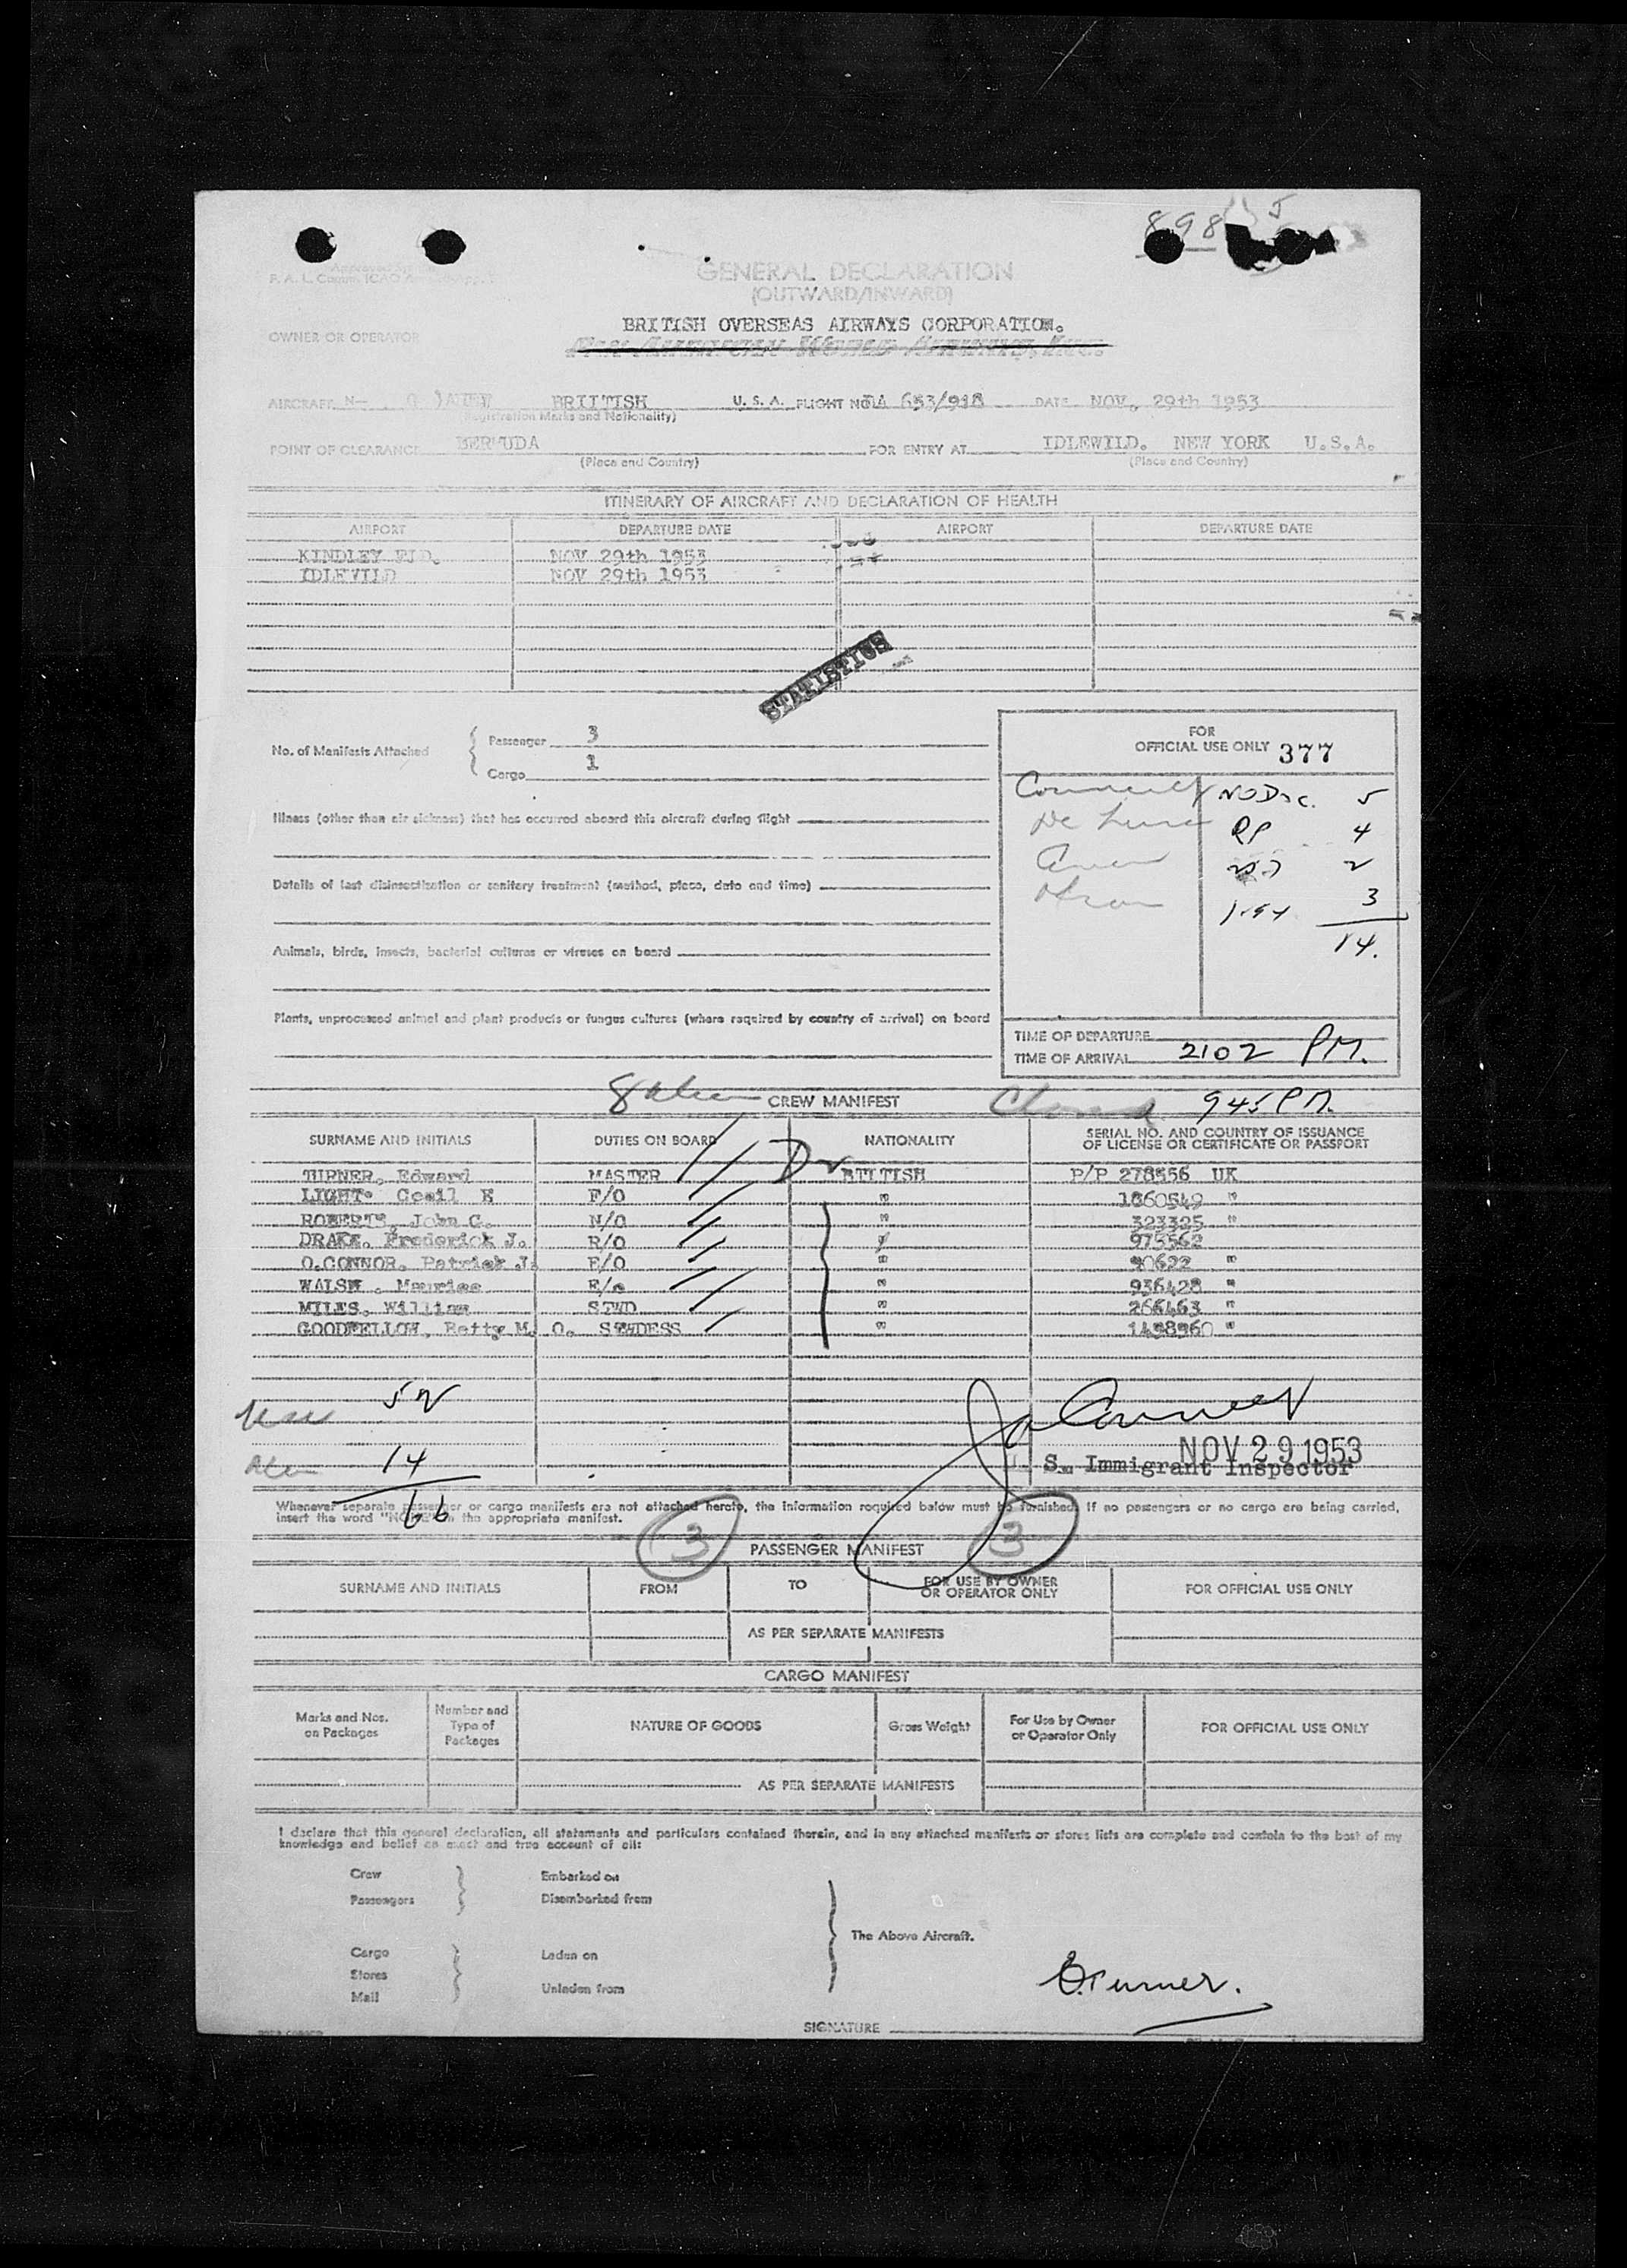 898
GENERAL DECLARATION
(OUTWARD/INWARD)
OWNER OR OPERATOR
BRITISH OVERSEAS AIRWAYS CORPORATION.
AIRCRAFT N— BRIITISH U. S. A. FLIGHT NO. 653/918 DATE NOV. 29th 1953
(Registration Marks and Nationality)
POINT OF CLEARANCE BERMUDA FOR ENTRY AT IDLEWILD. NEW YORK U.S.A.
(Place and Country) (Place and Country)
ITINERARY OF AIRCRAFT AND DECLARATION OF HEALTH
AIRPORT DEPARTURE DATE AIRPORT DEPARTURE DATE
KINDLEY FLD. NOV 29th 1953
IDLEWILD NOV 29th 1953
STATISTICS
No. of Manifests Attached
Passenger 3
Cargo 1
FOR
OFFICIAL USE ONLY 377
NO Doc. 5
RP 4
2
3
14.
Illness (other than air sickness) that has occurred aboard this aircraft during flight
Details of last disinsectisation or sanitary treatment (method, place, date and time)
Animals, birds, insects, bacterial cultures or viruses on board
Plants, unprocessed animal and plant products or fungus cultures (where required by country of arrival) on board
TIME OF DEPARTURE
TIME OF ARRIVAL 2102 PM.
8 Alien CREW MANIFEST Closed 945 PM
SURNAME AND INITIALS DUTIES ON BOARD NATIONALITY SERIAL NO. AND COUNTRY OF ISSUANCE
OF LICENSE OR CERTIFICATE OR PASSPORT
TURNER, Edward MASTER BTITISH P/P 278556 UK
LIGHT. Cecil E F/O " 1860549 "
ROBERTS, John C. N/O " 323325 "
DRAKE. Frederick J. R/O " 975562
O.CONNOR. Patrick J. E/O " 90622 "
WALSH . Maurice E/o " 936428 "
MILES. William STWD " 266463 "
GOODFELLOW, Betty M. O. STWDESS " 1498960 "
52
NOV 29 1953
U. S. Immigrant Inspector
Alien 14
66
Whenever separate passenger or cargo manifests are not attached hereto, the information required below must be furnished. If no passengers or no cargo are being carried,
insert the word "NONE" in the appropriate manifest.
3 3
PASSENGER MANIFEST
SURNAME AND INITIALS FROM TO FOR USE BY OWNER
OR OPERATOR ONLY FOR OFFICIAL USE ONLY
AS PER SEPARATE MANIFESTS
CARGO MANIFEST
Marks and Nos.
on Packages Number and
Type of
Packages NATURE OF GOODS Gross Weight For Use by Owner
or Operator Only FOR OFFICIAL USE ONLY
AS PER SEPARATE MANIFESTS
I declare that this general declaration, all statements and particulars contained therein, and in any attached manifests or stores lists are complete and contain to the best of my
knowledge and belief an exact and true account of all:
Crew Embarked on
Passengers Disembarked from
The Above Aircraft.
Cargo Laden on
Stores
Mail Unladen from
E. Turner.
SIGNATURE